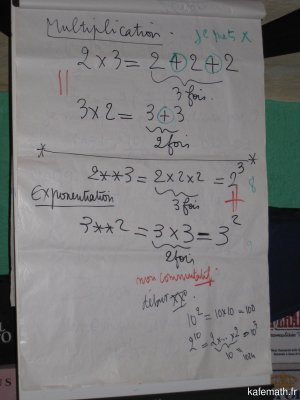 Multiplication.
je mets x
2 x 3 = 2 + 2 + 2
3 fois.
||
3 x 2 = 3 + 3
2 fois
* *
2**3 = 2 x 2 x 2 = 2³ 8
3 fois
Exponentiation
3**2 = 3 x 3 = 3²
2 fois
non commutatif.
10² = 10x10 = 100
2¹⁰ = 2x...x2
10
kafemath.fr